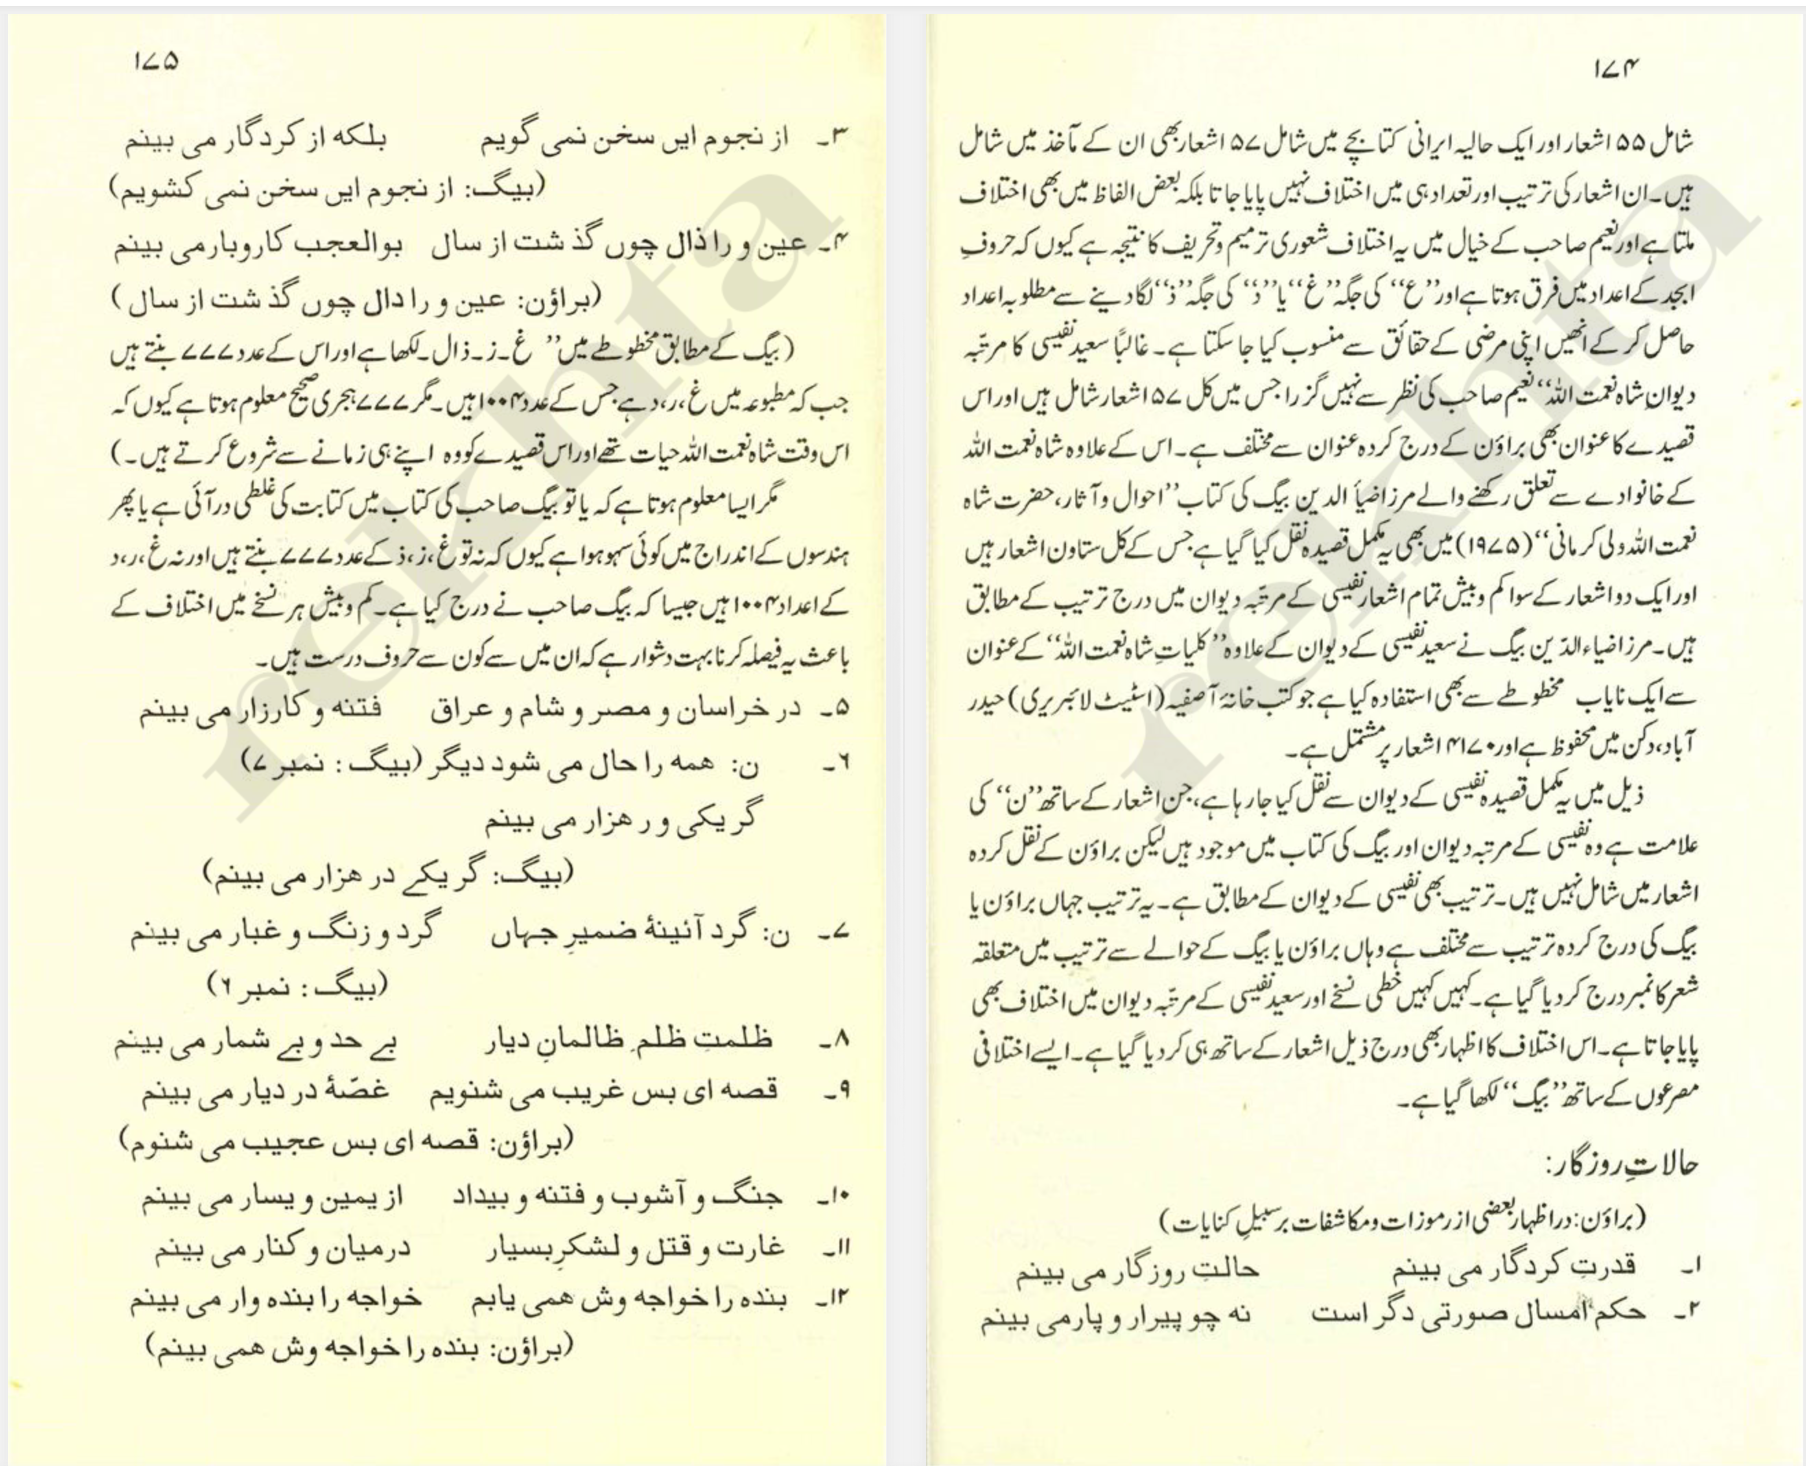 ۱۷۴
شامل ۵۵ اشعار اور ایک حالیہ ایرانی کتابچے میں شامل ۵۷ اشعار بھی ان کے مآخذ میں شامل
ہیں۔ ان اشعار کی ترتیب اور تعداد ہی میں اختلاف نہیں پایا جاتا بلکہ بعض الفاظ میں بھی اختلاف
ملتا ہے اور نعیم صاحب کے خیال میں یہ اختلاف شعوری ترمیم و تحریف کا نتیجہ ہے کیوں کہ حروفِ
ابجد کے اعداد میں فرق ہوتا ہے اور ’’ع‘‘ کی جگہ ’’غ‘‘ یا ’’د‘‘ کی جگہ ’’ذ‘‘ لگا دینے سے مطلوبہ اعداد
حاصل کر کے انھیں اپنی مرضی کے حقائق سے منسوب کیا جا سکتا ہے۔ غالباً سعید نفیسی کا مرتبّہ
دیوانِ شاہ نعمت اللہ‘‘ نعیم صاحب کی نظر سے نہیں گزرا جس میں کل ۵۷ اشعار شامل ہیں اور اس
قصیدے کا عنوان بھی براؤن کے درج کردہ عنوان سے مختلف ہے۔ اس کے علاوہ شاہ نعمت اللہ
کے خانوادے سے تعلق رکھنے والے مرزا ضیأ الدین بیگ کی کتاب ’’احوال و آثار، حضرت شاہ
نعمت اللہ ولی کرمانی‘‘ (۱۹۷۵) میں بھی یہ مکمل قصیدہ نقل کیا گیا ہے جس کے کل ستاون اشعار ہیں
اور ایک دو اشعار کے سوا کم و بیش تمام اشعار نفیسی کے مرتبّہ دیوان میں درج ترتیب کے مطابق
ہیں۔ مرزا ضیاء الدّین بیگ نے سعید نفیسی کے دیوان کے علاوہ ’’کلیاتِ شاہ نعمت اللہ‘‘ کے عنوان
سے ایک نایاب مخطوطے سے بھی استفادہ کیا ہے جو کتب خانۂ آصفیہ (اسٹیٹ لائبریری) حیدر
آباد، دکن میں محفوظ ہے اور ۴۱۷۰ اشعار پر مشتمل ہے۔
ذیل میں یہ مکمل قصیدہ نفیسی کے دیوان سے نقل کیا جا رہا ہے، جن اشعار کے ساتھ ’’ن‘‘ کی
علامت ہے وہ نفیسی کے مرتبہ دیوان اور بیگ کی کتاب میں موجود ہیں لیکن براؤن کے نقل کردہ
اشعار میں شامل نہیں ہیں۔ ترتیب بھی نفیسی کے دیوان کے مطابق ہے۔ یہ ترتیب جہاں براؤن یا
بیگ کی درج کردہ ترتیب سے مختلف ہے وہاں براؤن یا بیگ کے حوالے سے ترتیب میں متعلقہ
شعر کا نمبر درج کر دیا گیا ہے۔ کہیں کہیں خطی نسخے اور سعید نفیسی کے مرتبّہ دیوان میں اختلاف بھی
پایا جاتا ہے۔ اس اختلاف کا اظہار بھی درج ذیل اشعار کے ساتھ ہی کر دیا گیا ہے۔ ایسے اختلافی
مصرعوں کے ساتھ ’’بیگ‘‘ لکھا گیا ہے۔
حالاتِ روزگار:
(براؤن: در اظہار بعضی از رموزات و مکاشفات بر سبیلِ کنایات)
۱۔ قدرتِ کردگار می بینم حالتِ روزگار می بینم
۲۔ حکم امسال صورتی دگر است نہ چو پیرار و پار می بینم
۱۷۵
۳۔ از نجوم ایں سخن نمی گویم بلکہ از کردگار می بینم
(بیگ: از نجوم ایں سخن نمی کشویم)
۴۔ عین و را ذال چوں گذشت از سال بوالعجب کاروبار می بینم
(براؤن: عین و را دال چوں گذشت از سال )
(بیگ کے مطابق مخطوطے میں ’’ غ۔ ز۔ ذال۔ لکھا ہے اور اس کے عدد ۷۷۷ بنتے ہیں
جب کہ مطبوعہ میں غ، ر، د ہے جس کے عدد ۱۰۰۴ ہیں۔ مگر ۷۷۷ ہجری صحیح معلوم ہوتا ہے کیوں کہ
اس وقت شاہ نعمت اللہ حیات تھے اور اس قصیدے کو وہ اپنے ہی زمانے سے شروع کرتے ہیں۔)
مگر ایسا معلوم ہوتا ہے کہ یا تو بیگ صاحب کی کتاب میں کتابت کی غلطی در آئی ہے یا پھر
ہندسوں کے اندراج میں کوئی سہو ہوا ہے کیوں کہ نہ تو غ، ز، ذ کے عدد ۷۷۷ بنتے ہیں اور نہ غ، ر، د
کے اعداد ۱۰۰۴ ہیں جیسا کہ بیگ صاحب نے درج کیا ہے۔ کم و بیش ہر نسخے میں اختلاف کے
باعث یہ فیصلہ کرنا بہت دشوار ہے کہ ان میں سے کون سے حروف درست ہیں۔
۵۔ در خراسان و مصر و شام و عراق فتنہ و کارزار می بینم
۶۔ ن: ھمہ را حال می شود دیگر (بیگ: نمبر ۷)
گر یکی و ر ھزار می بینم
(بیگ: گر یکے در ھزار می بینم)
۷۔ ن: گرد آئینۂ ضمیرِ جہاں گرد و زنگ و غبار می بینم
(بیگ: نمبر ۶)
۸۔ ظلمتِ ظلم ِ ظالمانِ دیار بے حد و بے شمار می بینم
۹۔ قصہ ای بس غریب می شنویم غصّۂ در دیار می بینم
(براؤن: قصہ ای بس عجیب می شنوم)
۱۰۔ جنگ و آشوب و فتنہ و بیداد از یمین و یسار می بینم
۱۱۔ غارت و قتل و لشکرِ بسیار درمیان و کنار می بینم
۱۲۔ بندہ را خواجہ وش ھمی یابم خواجہ را بندہ وار می بینم
(براؤن: بندہ را خواجہ وش ھمی بینم)
rekhta
rekhta